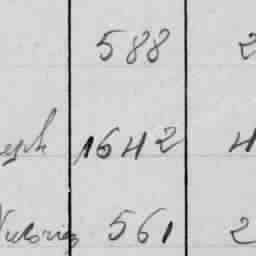 588 2
eph 1642 4
Victoria 561 2